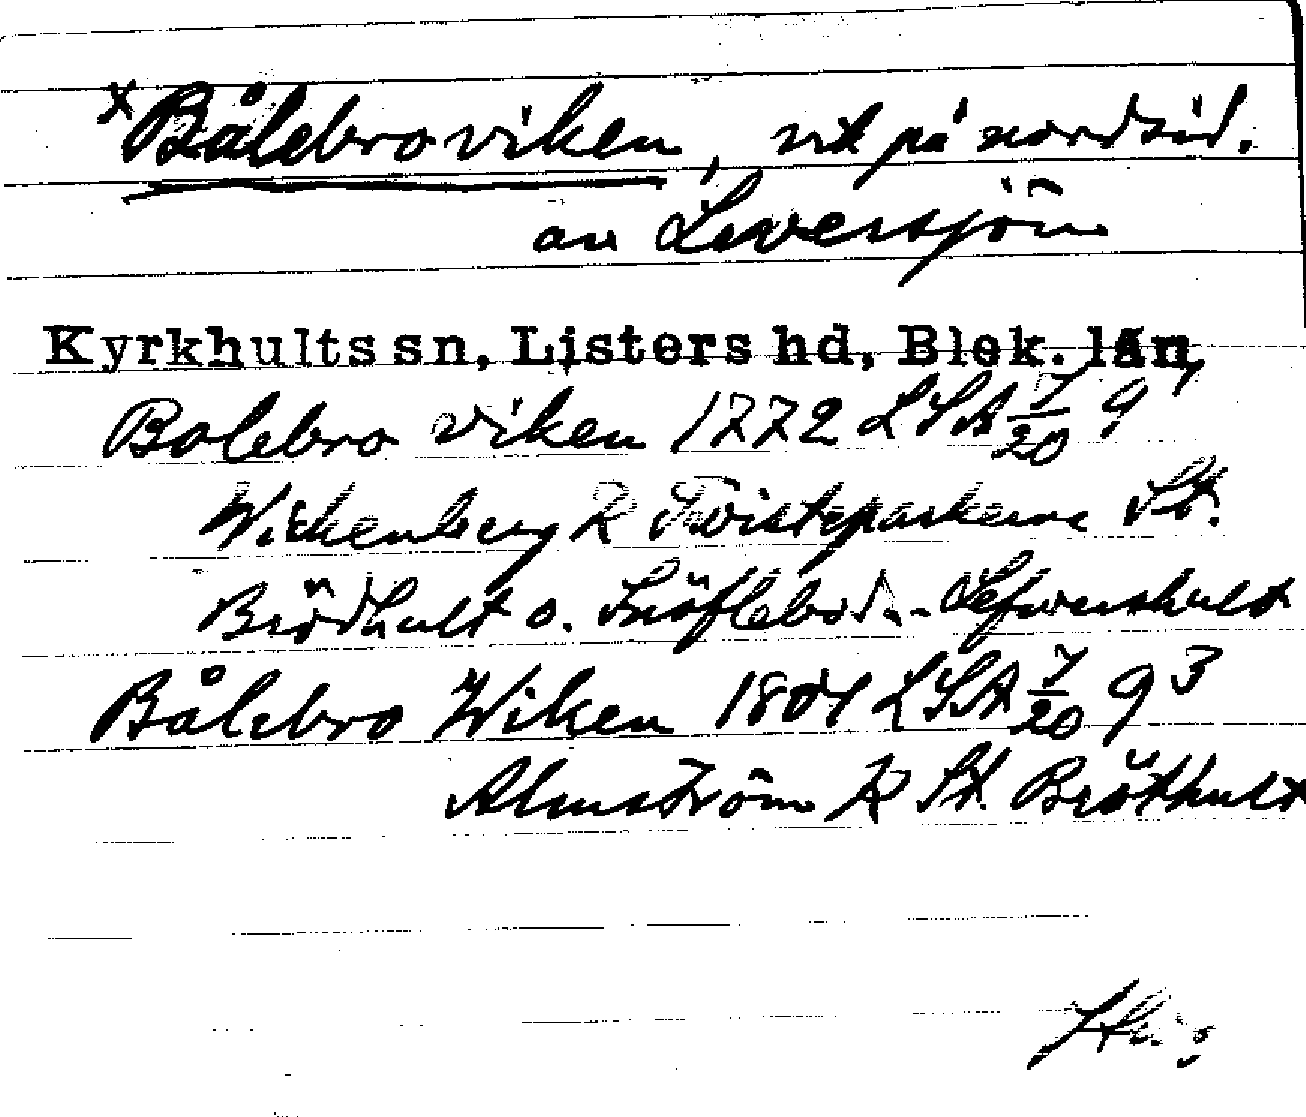 x Bålebroviken, vik på nordsid.
av Leversjön
Kyrkhults sn, Listers hd, Blek. län,
Bolebro viken 1772 LSA 7/20 9 1
Wickenberg R Twisteparkerne St.
Brödhult o. Snöflebod.- Lefvershult
Bålebro Wiken 1804 LSA 7/20 9 3
Almström R St. Bröthult